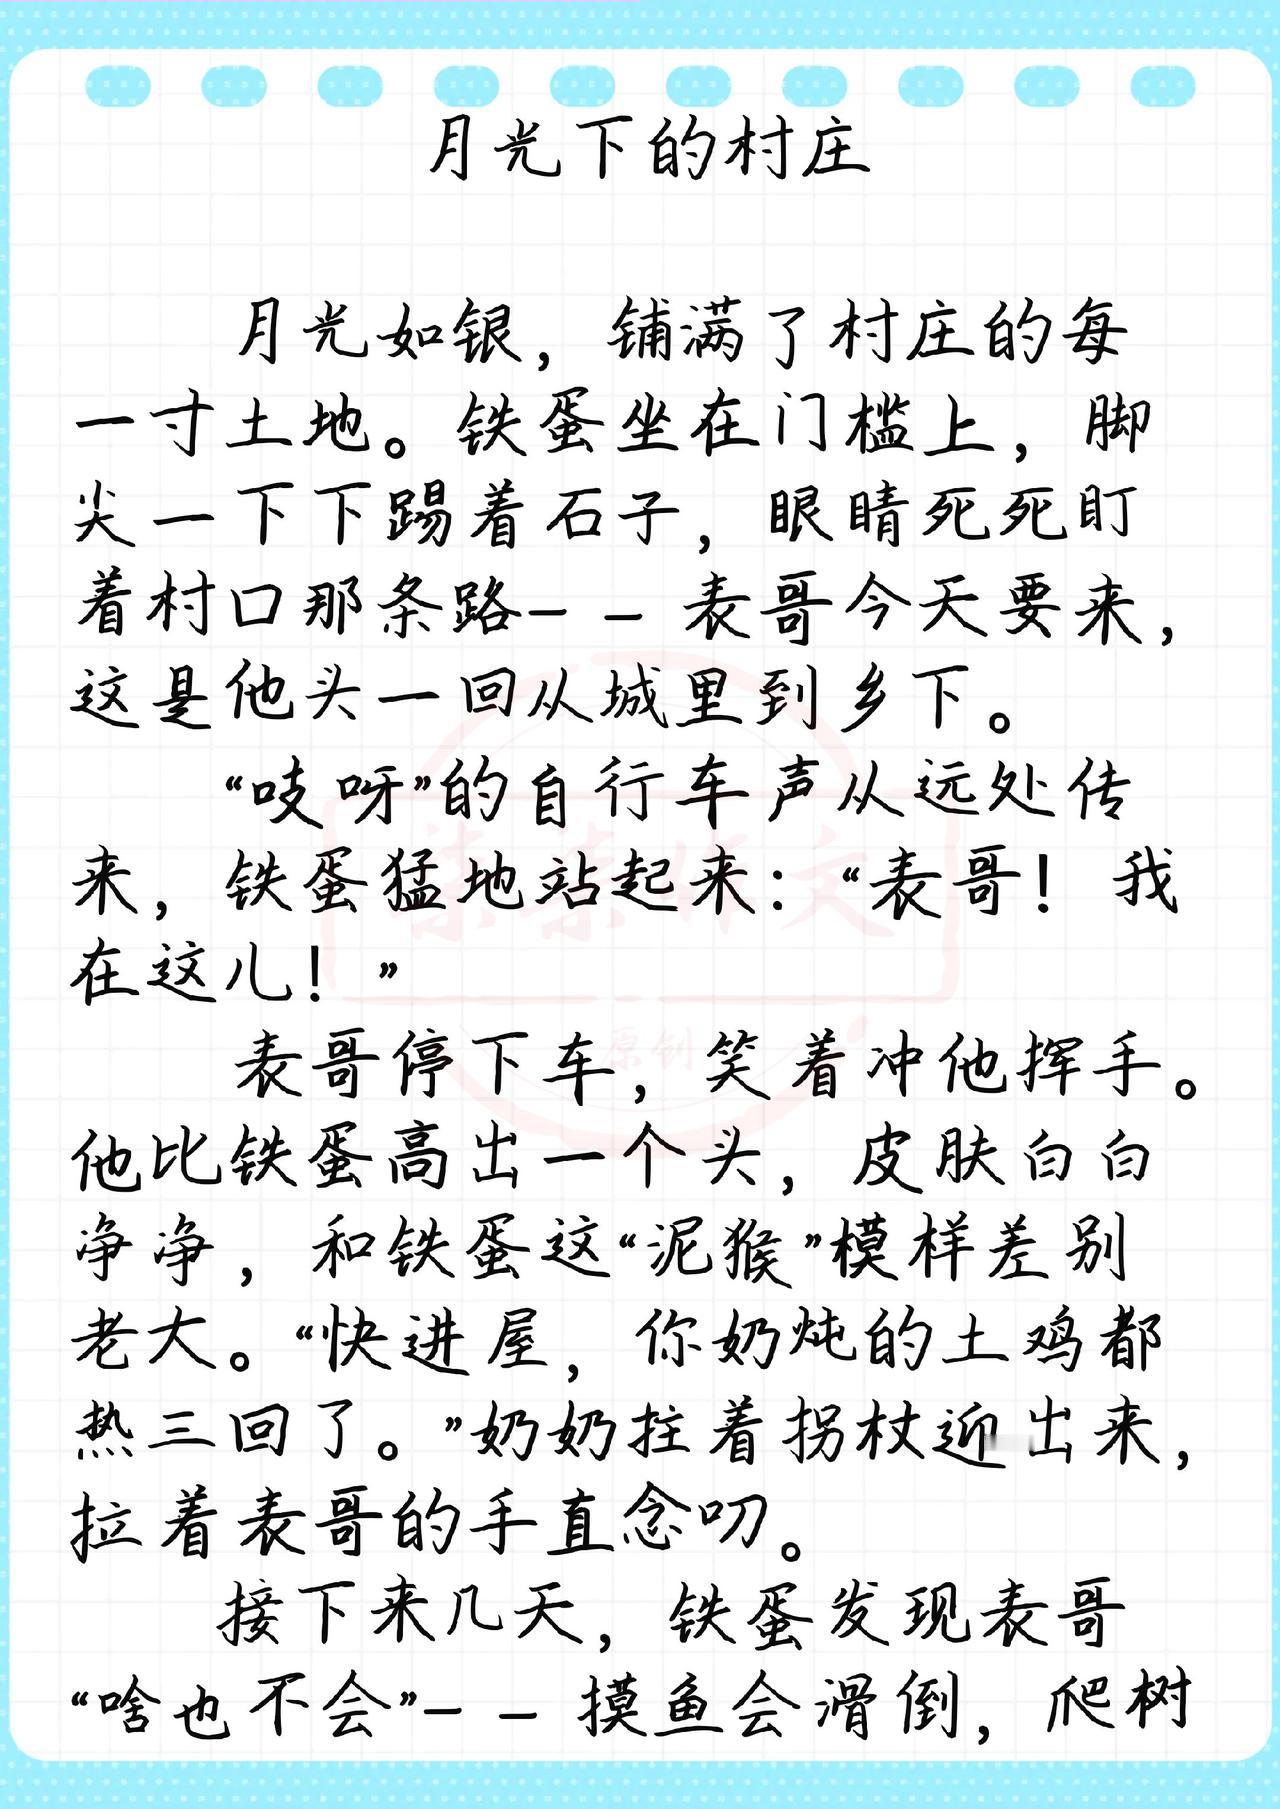 月光下的村庄
月光如银，铺满了村庄的每
一寸土地。铁蛋坐在门槛上，脚
尖一下下踢着石子，眼睛死死盯
着村口那条路——表哥今天要来，
这是他头一回从城里到乡下。
“吱呀”的自行车声从远处传
来，铁蛋猛地站起来：“表哥！我
在这儿！”
表哥停下车，笑着冲他挥手。
他比铁蛋高出一个头，皮肤白白
净净，和铁蛋这“泥猴”模样差别
老大。“快进屋，你奶炖的土鸡都
热三回了。”奶奶拄着拐杖迎出来，
拉着表哥的手直念叨。
接下来几天，铁蛋发现表哥
“啥也不会”——摸鱼会滑倒，爬树
柒柒作文
原创